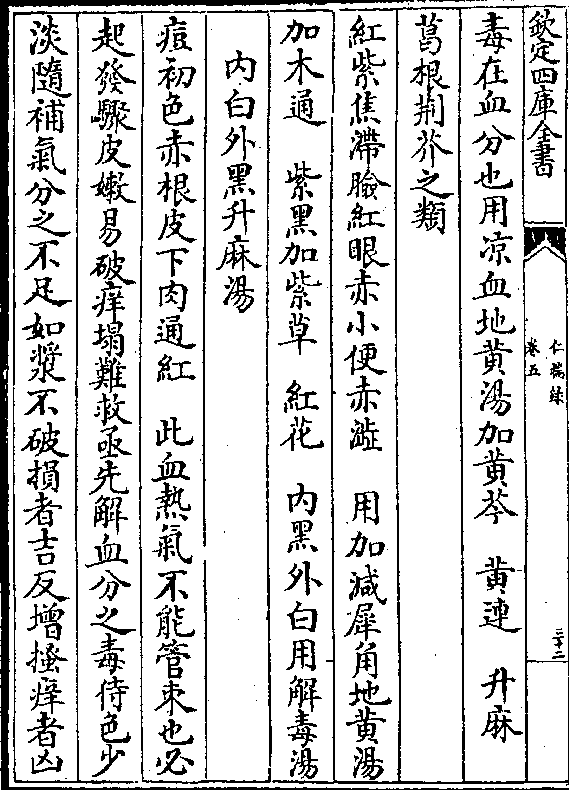 欽定四庫全書
仁端録
卷五
三十二
毒在血分也用凉血地黄湯加黄芩　黄連　升麻
葛根荆芥之類
紅紫焦滯臉紅眼赤小便赤澁　用加減犀角地黄湯
加木通　紫黑加紫草　紅花　内黑外白用解毒湯
内白外黑升麻湯
痘初色赤根皮下肉通紅　此血熱氣不能管束也必
起發驟皮嫩易破痒塌難救亟先解血分之毒侍色少
淡隨補氣分之不足如漿不破損者吉反增搔痒者凶